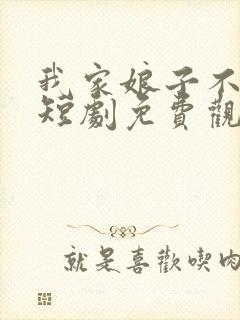 我家娘子不
短劇免費觀
就是喜歡喫肉